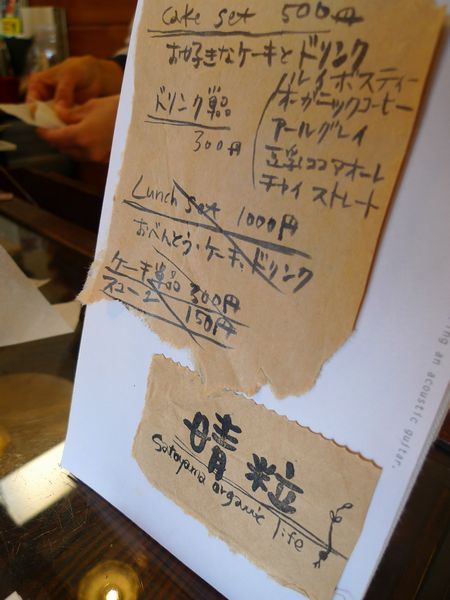 cake set 500円
お好きなケーキとドリンク
ドリンク単品
300円
ルイボスティー
オーガニックコーヒー
アールグレイ
豆乳ココアオーレ
チャイ ストレート
Lunch set 1000円
おべんとう・ケーキ、ドリンク
ケーキ単品 300円
150円
晴粒
Satoyama organic life
ing an acoustic guitar.